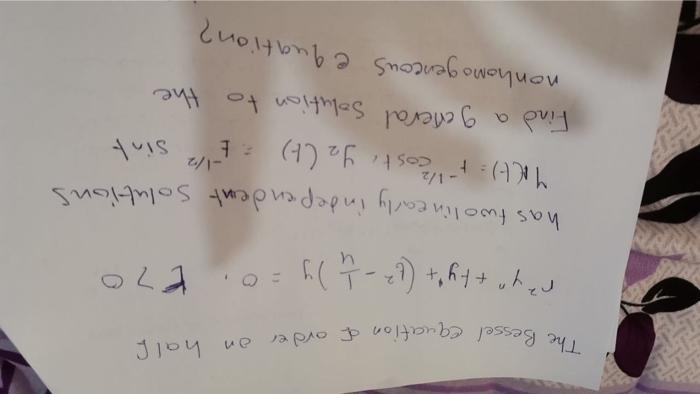 The Bessel equation of order an half
t²y" + ty' + (t² - 1/4)y = 0, t > 0
has two linearly independent solutions
y1(t) = t^-1/2 cost, y2(t) = t^-1/2 sint
Find a general solution to the
nonhomogeneous equation?